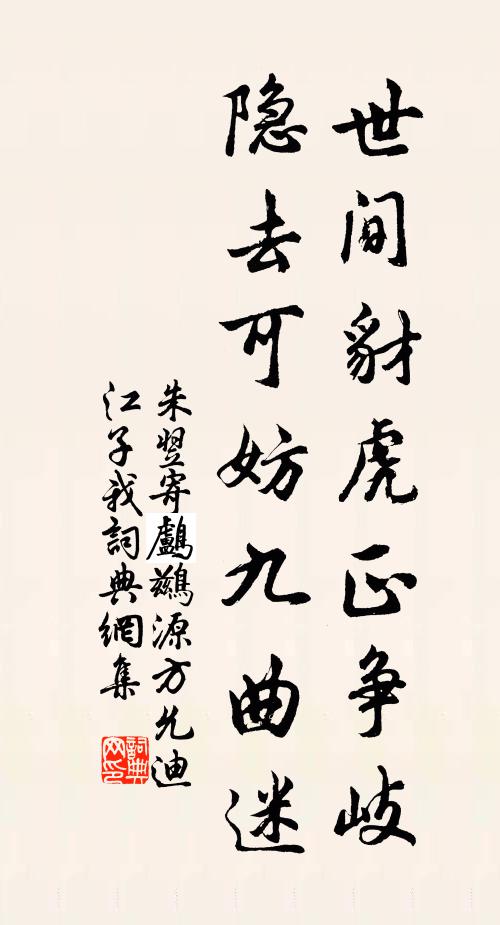 世间豺虎正争歧
隐去可妨九曲迷
朱翌寄鸕鹚源方允迪
江子我詞典網集
詞典网印